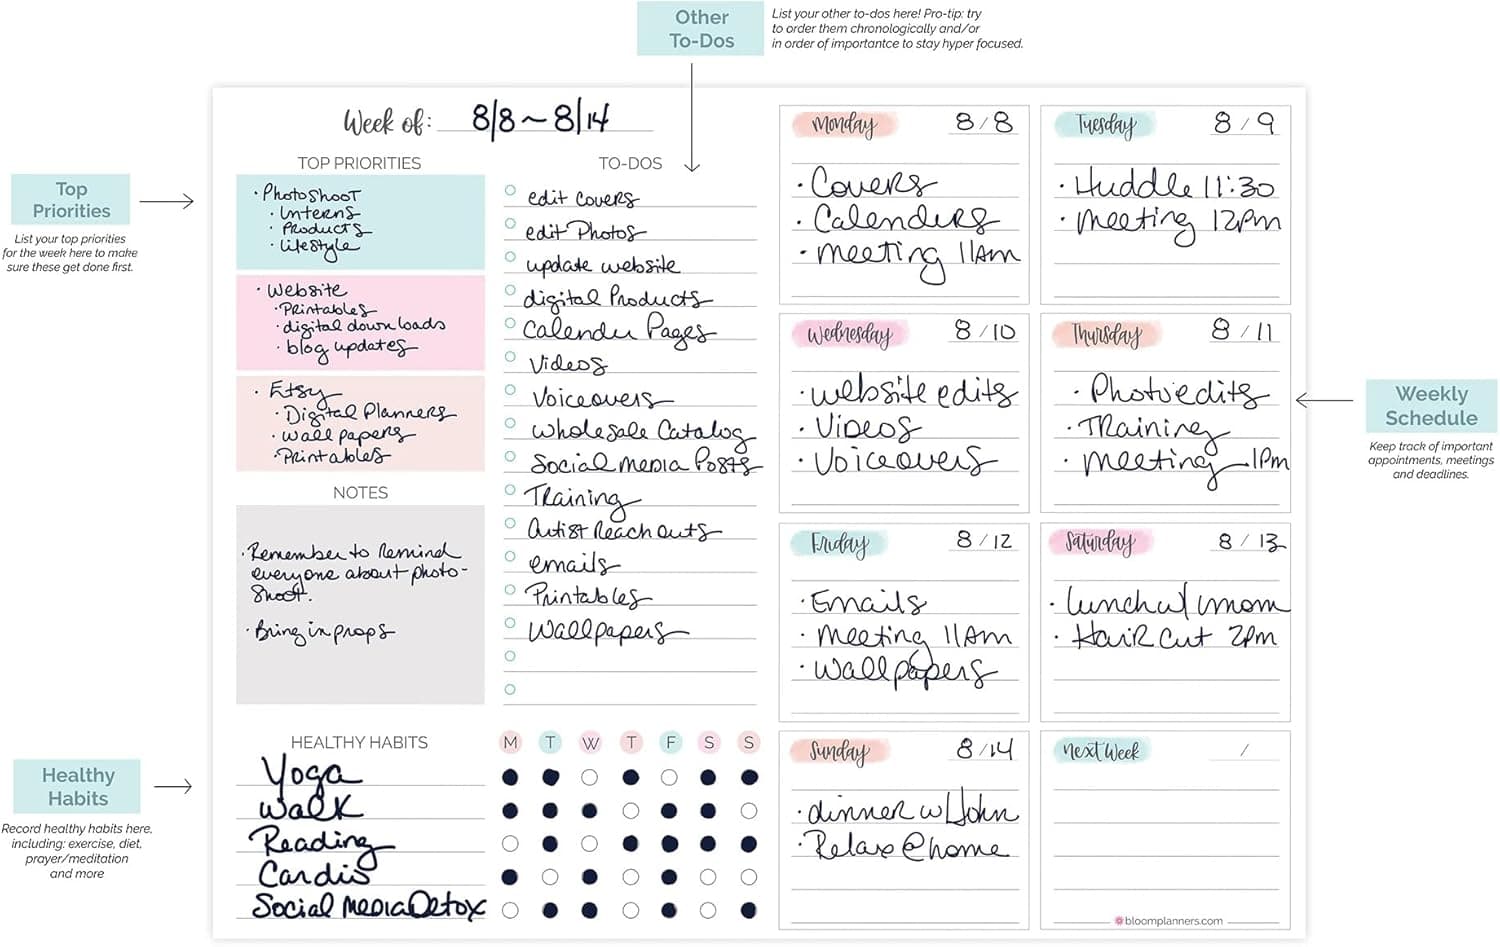 Other
To-Dos
List your other to-dos here! Pro-tip: try
to order them chronologically and/or
in order of importantce to stay hyper focused.
Top
Priorities
List your top priorities
for the week here to make
sure these get done first.
Healthy
Habits
Record healthy habits here,
including: exercise, diet,
prayer/meditation
and more
Weekly
Schedule
Keep track of important
appointments, meetings
and deadlines.
Week of: 8/8 ~ 8/14
TOP PRIORITIES
· PhotoShoot
· Interns
· Products
· Lifestyle
· Website
· Printables
· digital downloads
· blog updates
· Etsy
· Digital Planners
· wallpapers
· Printables
NOTES
· Remember to Remind
everyone about photo-
Shoot.
· Bring in props
TO-DOS
edit covers
edit Photos
update website
digital Products
Calender Pages
Videos
Voiceovers
Wholesale Catalog
Social media Posts
Training
Artist Reach outs
emails
Printables
Wallpapers
HEALTHY HABITS M T W T F S S
Yoga
Walk
Reading
Cardio
Social Media Detox
Monday 8/8
· Covers
· Calenders
· meeting 11Am
Tuesday 8/9
· Huddle 11:30
· meeting 12pm
Wednesday 8/10
· website edits
· Videos
· Voiceovers
Thursday 8/11
· Photo edits
· Training
· meeting 1pm
Friday 8/12
· Emails
· meeting 11Am
· Wallpapers
Saturday 8/13
· lunch w/ mom
· Haircut 2pm
Sunday 8/14
· dinner w/ John
· Relax @ home
Next Week /
bloomplanners.com